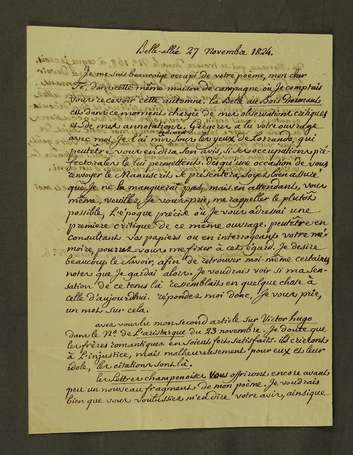 Belle-allée 27 Novembre 1824.
Je me suis beaucoup occupé de votre poème, mon cher
dans cette même maison de campagne où Je comptais
vous recevoir cette automne. La Belle au Bois Dormant
est dans ce moment chargé de mes observations critiques
et de mes annotations. Gaspiere a lu votre ouvrage
avec moi; Je l'ai remis sous les yeux de
peut être vous en dira son avis, si ses occupations pré-
fectorales le lui permettent. Dès qu'une occasion de vous
envoyer le Manuscrit se présentera, soyez bien assuré
que Je ne la manquerai pas, mais en attendant, vous
même, veuillez Je vous prie, me rappeler le plutôt
possible, L'époque précise où Je vous adressai une
première critique de ce même ouvrage. peut être en
consultant vos papiers ou en interrogeant votre mé-
moire, pourrez vous me fixer à cet égard. Je desire
beaucoup le savoir, afin de retrouver moi même certaines
notes que Je gardai alors. Je voudrais voir si ma sen-
sation de ce tems là ressemblait en quelque chose à
celle d'aujourd'hui. répondez moi donc, Je vous prie,
un mot sur cela.
avez vous lu mon second article sur Victor hugo
dans le No. de L'aristarque du 23 novembre. Je doute que
les frères romantiques en soient fort satisfaits. ils crieront
à l'injustice, mais malheureusement pour eux et leur
idole, les citations sont là.
les Lettres champenoises vous offriront encore avant
peu un nouveau fragment de mon poème. Je voudrais
bien que vous voulussiez m'en dire votre avis, ainsi que